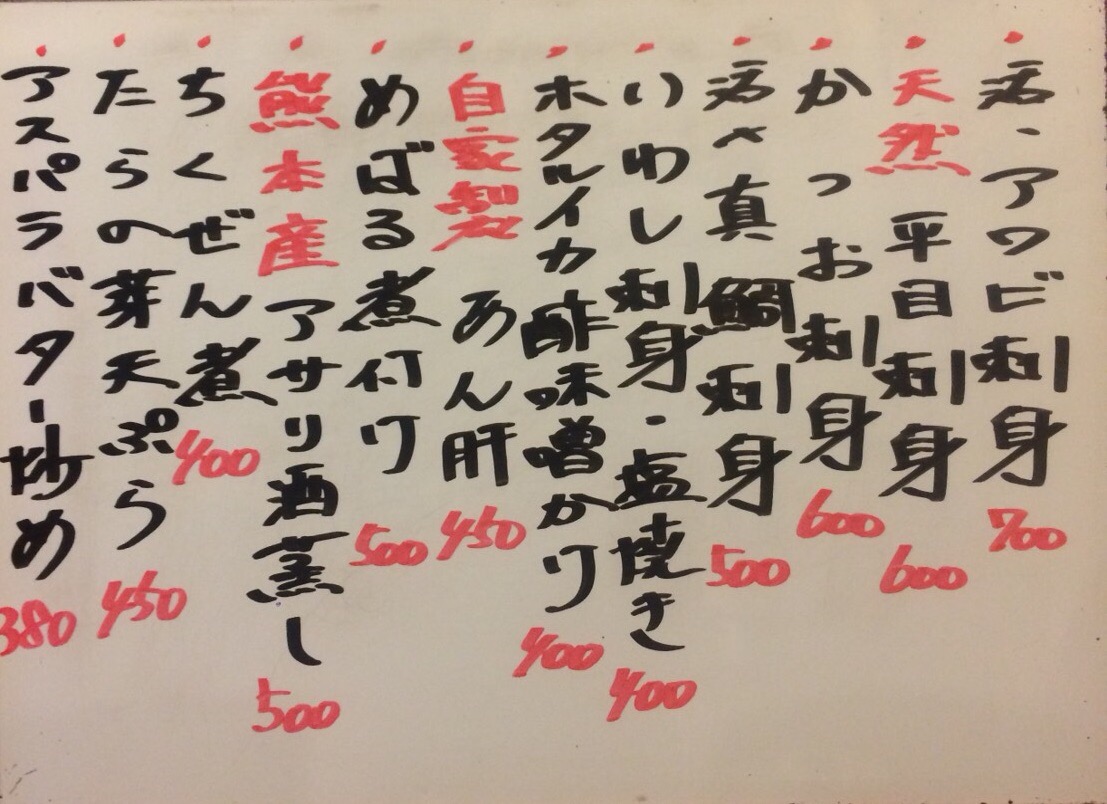 活、アワビ刺身 700
天然 平目刺身 600
かつお刺身 600
活〆真鯛刺身 500
いわし刺身・塩焼き 400
ホタルイカ酢味噌かけ 400
自家製 あん肝 450
めばる煮付け 500
熊本産 アサリ酒蒸し 500
ちくぜん煮 400
たらの芽天ぷら 450
アスパラバター炒め 380